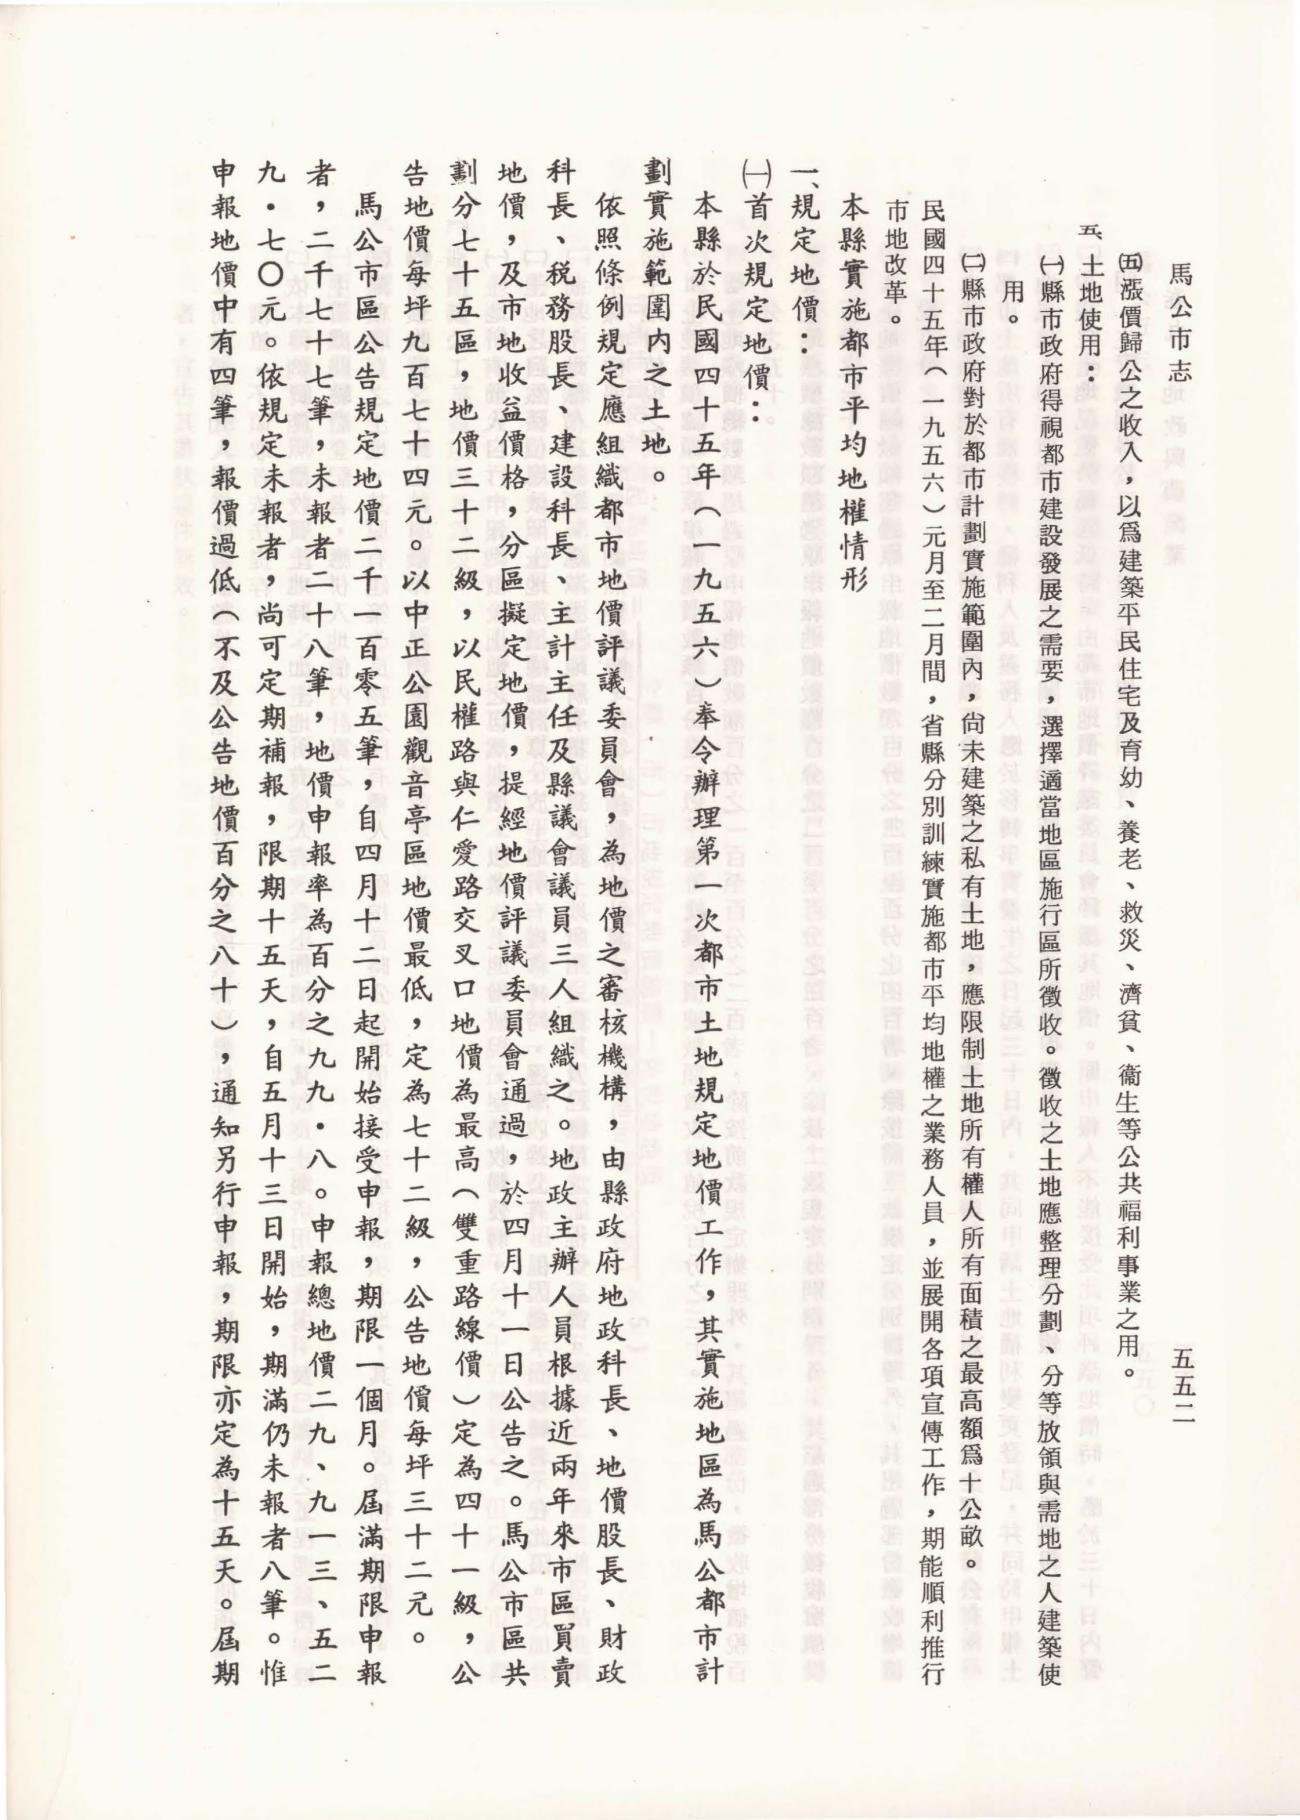 馬公市志
五五二
㈤漲價歸公之收入，以爲建築平民住宅及育幼、養老、救災、濟貧、衞生等公共福利事業之用。
五、土地使用：
㈠縣市政府得視都市建設發展之需要，選擇適當地區施行區所徵收。徵收之土地應整理分劃、分等放領與需地之人建築使
用。
㈡縣市政府對於都市計劃實施範圍內，尚未建築之私有土地，應限制土地所有權人所有面積之最高額爲十公畝。
民國四十五年（一九五六）元月至二月間，省縣分別訓練實施都市平均地權之業務人員，並展開各項宣傳工作，期能順利推行
市地改革。
本縣實施都市平均地權情形
一、規定地價：
㈠首次規定地價：
本縣於民國四十五年（一九五六）奉令辦理第一次都市土地規定地價工作，其實施地區為馬公都市計
劃實施範圍內之土地。
依照條例規定應組織都市地價評議委員會，為地價之審核機構，由縣政府地政科長、地價股長、財政
科長、稅務股長、建設科長、主計主任及縣議會議員三人組織之。地政主辦人員根據近兩年來市區買賣
地價，及市地收益價格，分區擬定地價，提經地價評議委員會通過，於四月十一日公告之。馬公市區共
劃分七十五區，地價三十二級，以民權路與仁愛路交叉口地價為最高（雙重路線價）定為四十一級，公
告地價每坪九百七十四元。以中正公園觀音亭區地價最低，定為七十二級，公告地價每坪三十二元。
馬公市區公告規定地價二千一百零五筆，自四月十二日起開始接受申報，期限一個月。屆滿期限申報
者，二千七十七筆，未報者二十八筆，地價申報率為百分之九九・八。申報總地價二二九、九一三、五二
九・七〇元。依規定未報者，尚可定期補報，限期十五天，自五月十三日開始，期滿仍未報者八筆。惟
申報地價中有四筆，報價過低（不及公告地價百分之八十），通知另行申報，期限亦定為十五天。屆期